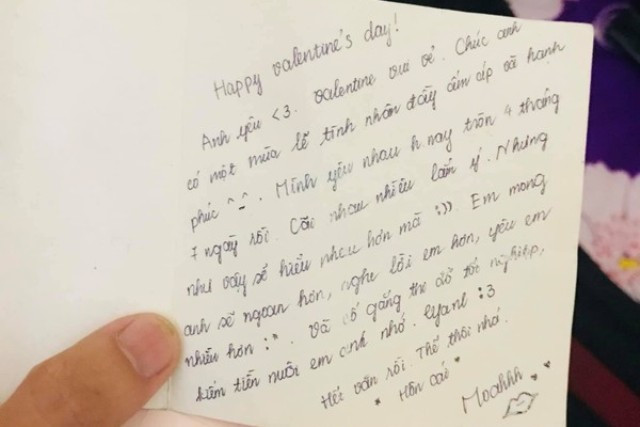 Happy valentine's day!
Anh yêu <3. Valentine vui vẻ. Chúc anh
có một mùa lễ tình nhân đầy ấm áp và hạnh
phúc ^_^. Mình yêu nhau h. nay tròn 4 tháng
7 ngày rồi. Cãi nhau nhiều lắm ý. Nhưng
như vậy sẽ hiểu nhau hơn mà :)). Em mong
anh sẽ ngoan hơn, nghe lời em hơn, yêu em
nhiều hơn :">. Và cố gắng thi đỗ tốt nghiệp,
kiếm tiền nuôi em anh nhớ. :3
Hết văn rồi. Thế thôi nhá.
* Hôn cái *
Moahhh